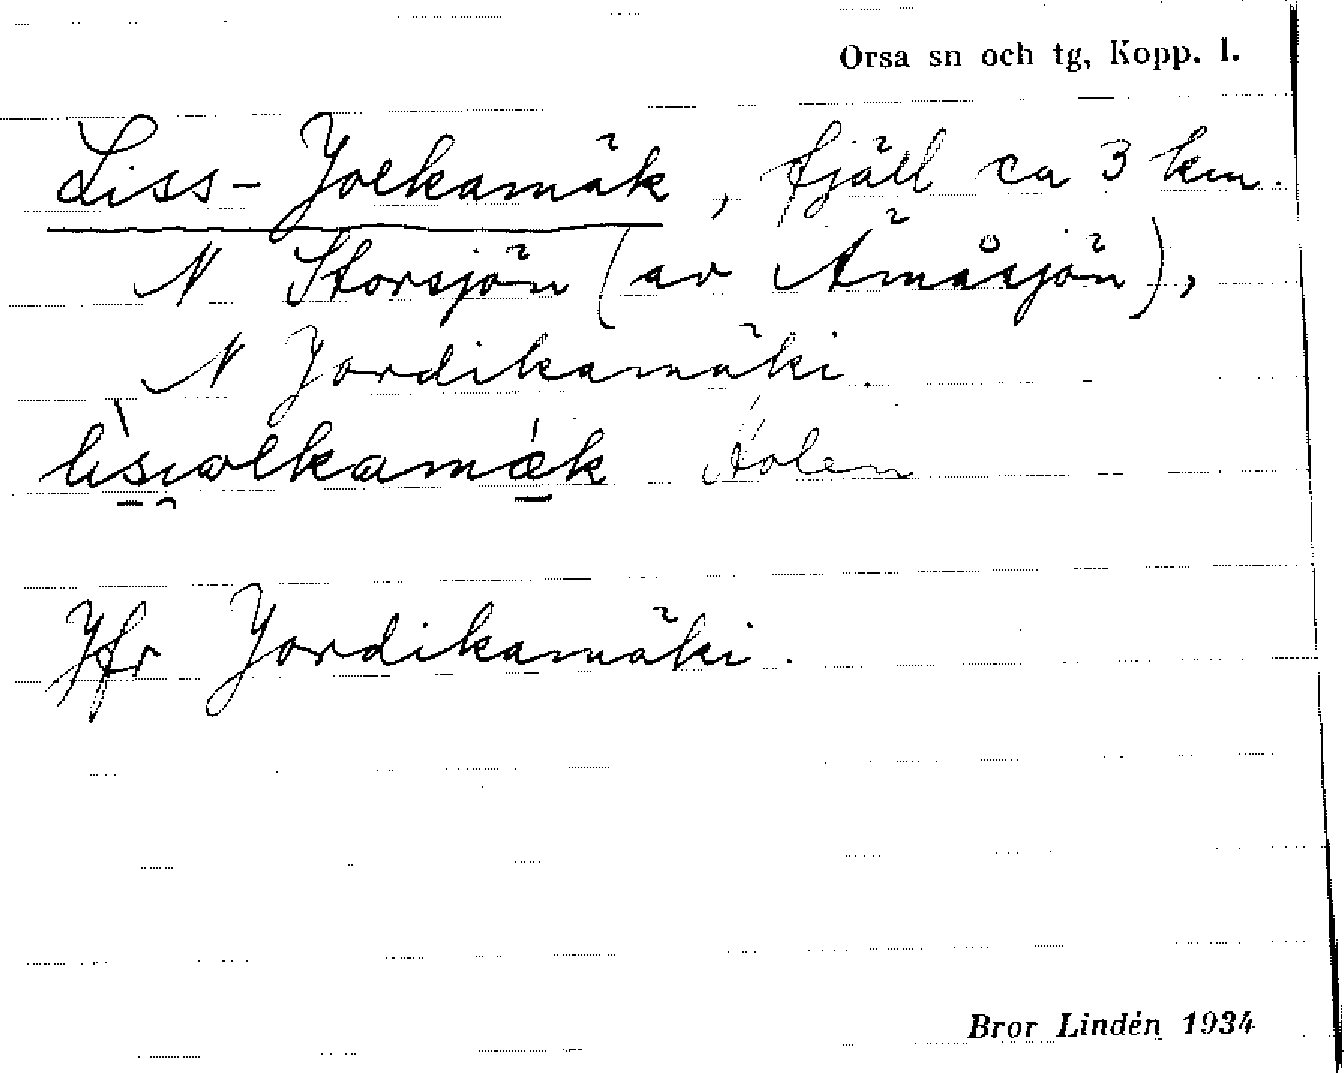 Orsa sn och tg, Kopp. l.
Liss-Jolkamäk, fjäll ca 3 km.
N Storsjön (av Ämåsjön),
N Jordikamäki.
Jfr Jordikamäki.
Bror Lindén 1934